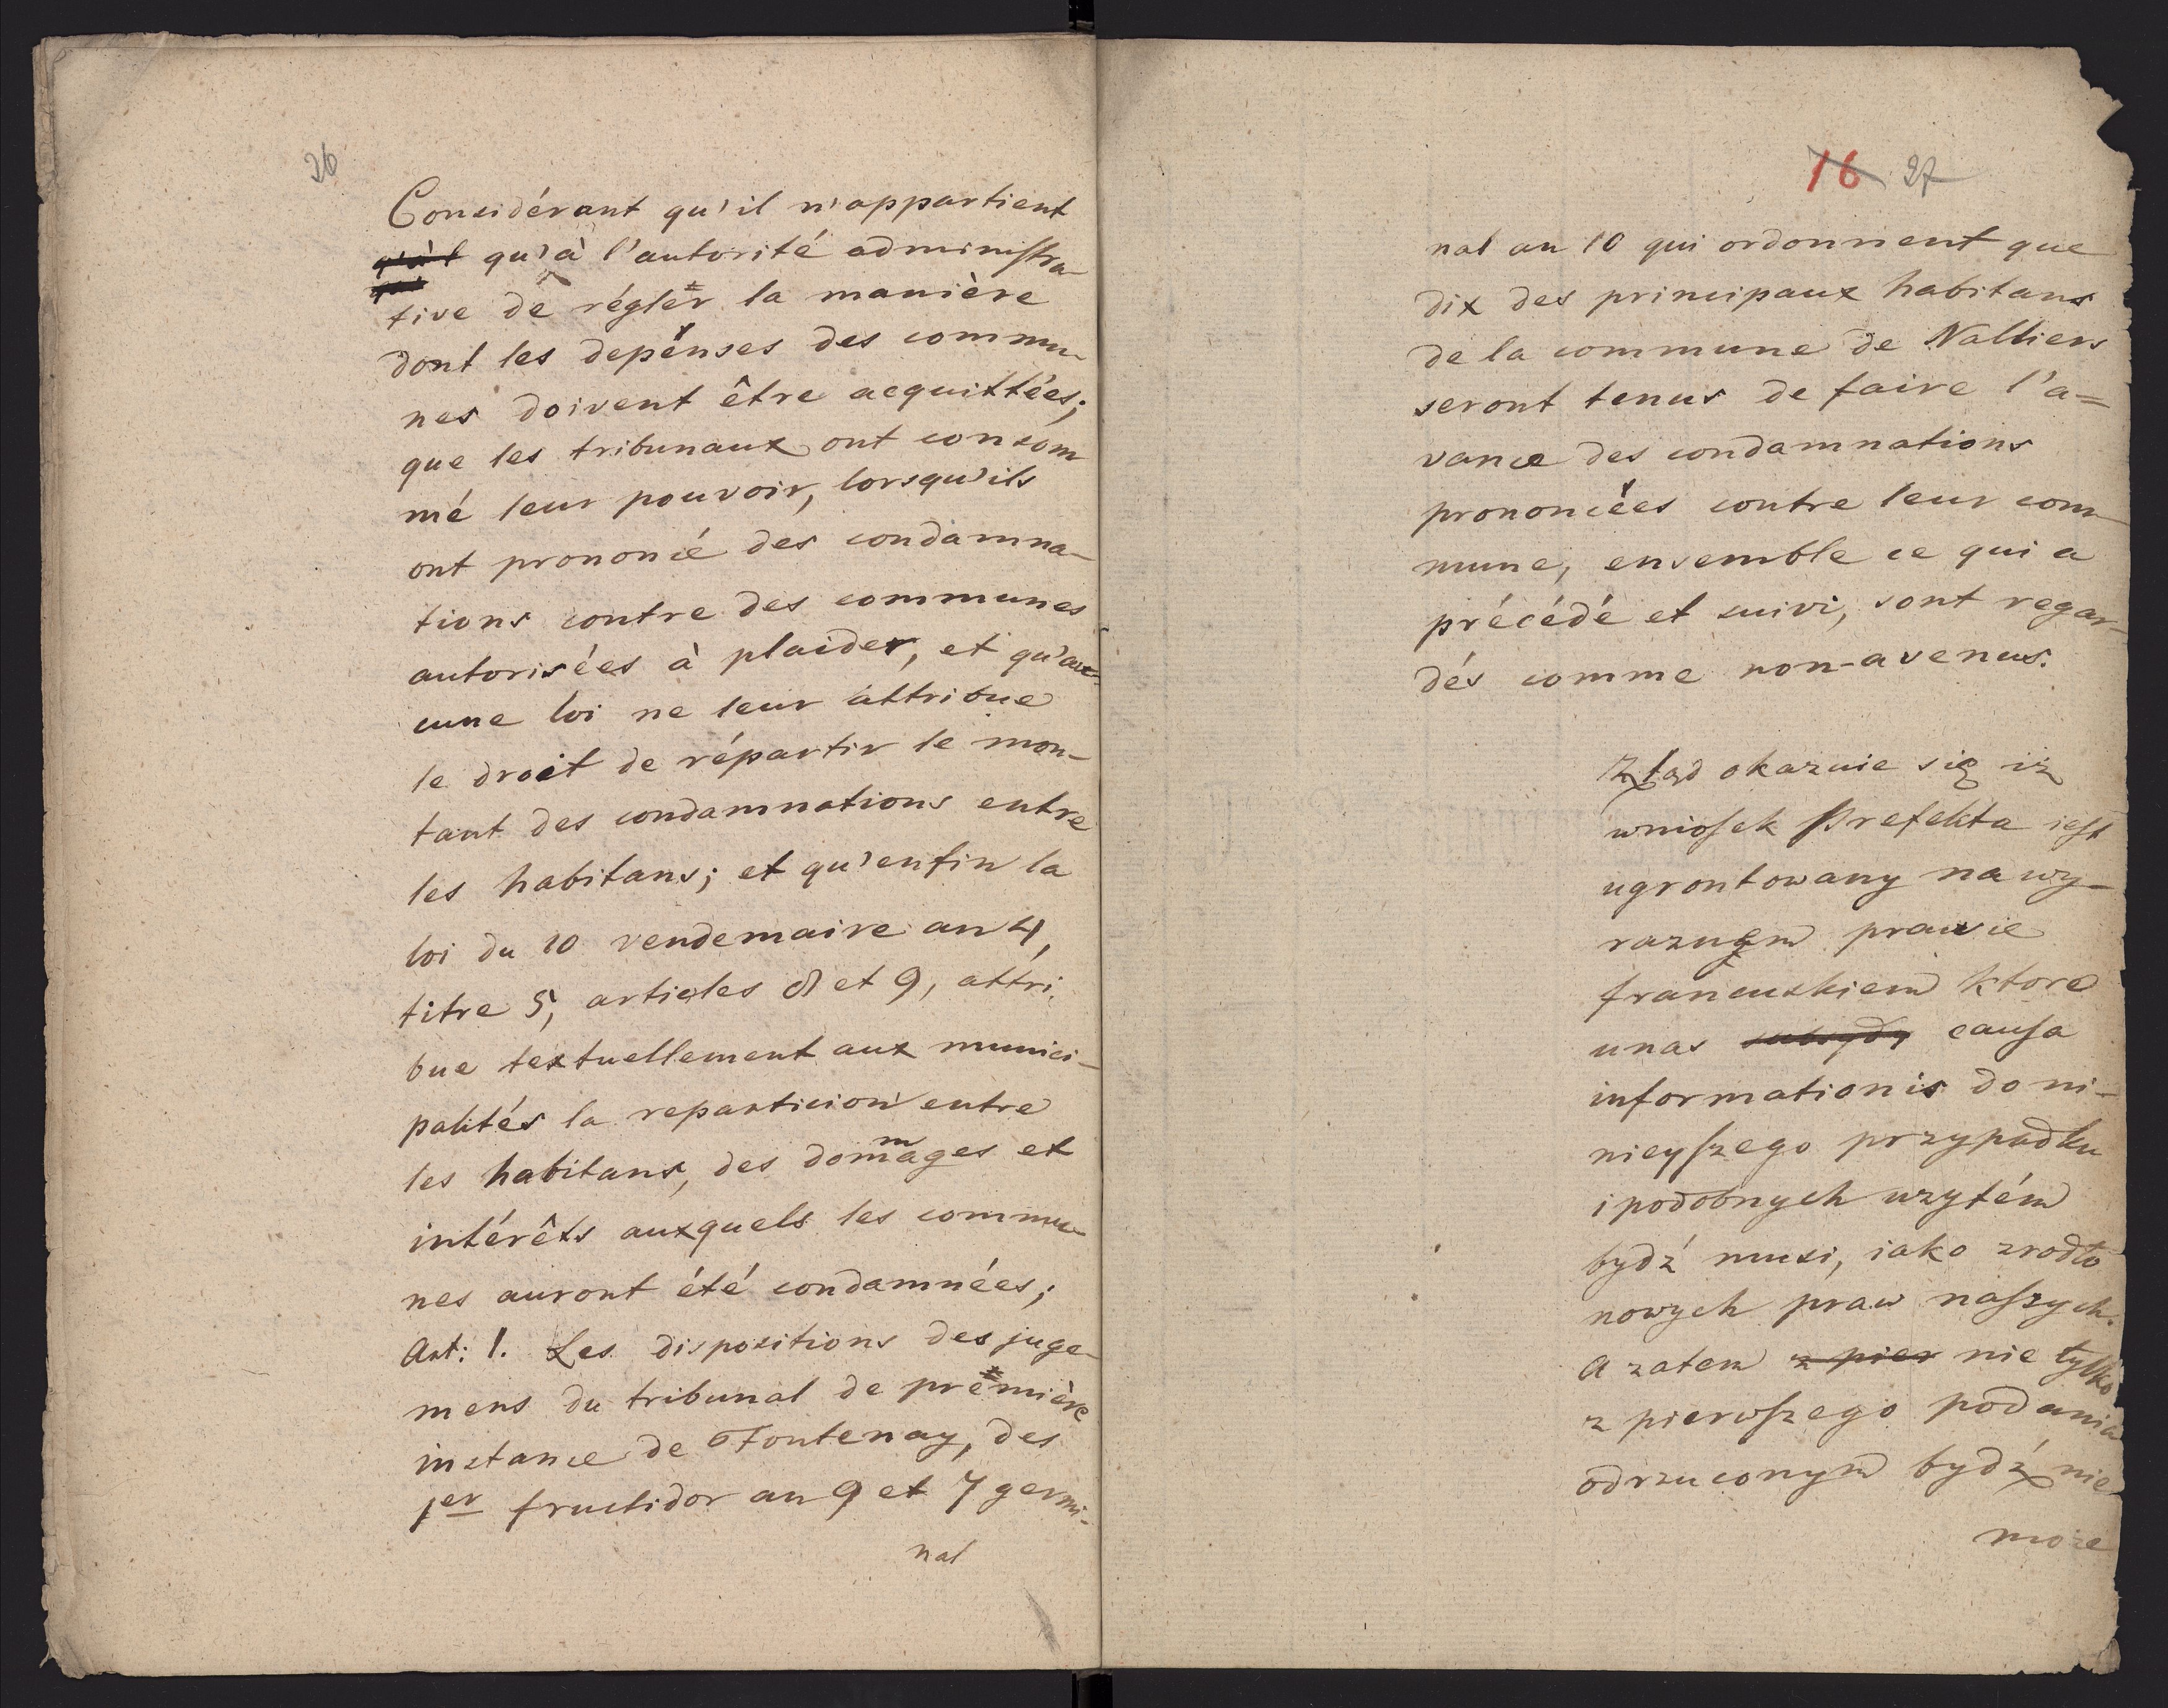 26
Considérant qu'il n'appartient
qu'à l'autorité administra-
tive de régler la manière
dont les depenses des commu-
nes doivent être acquittées;
que les tribunaux ont consom
mé leur pouvoir, lorsqu'ils
ont prononcé des condamna-
tions contre des communes
autorisées à plaider, et qu'au-
cune loi ne leur attribue
le droit de répartir le mon-
tant des condamnations entre
les habitans; et qu'enfin la
loi du 10 vendemaire an 4,
titre 5, articles 8 et 9, attri-
bue textuellement aux munici-
palités la reparticion entre
les habitans, des dommages et
intérêts auxquels les commu-
nes auront été condamnées;
Art: 1. Les dispositions des juge-
mens du tribunal de première
instance de Fontenay, des
1er fructidor an 9 et 7 germi-
nal
16 27
nal an 10 qui ordonnent que
dix des principaux habitans
de la commune de Nalliers
seront tenus de faire l'a=
vance des condamnations
prononcées contre leur com-
mune, ensemble ce qui a
précédé et suivi, sont regar-
dés comme non-avenus.
Ztąd okazuie się iz
wniosek Prefekta iest
ugrontowany na wy-
raznem prawie
francuskiem ktore
u nas causa
informationis do ni-
nieyszego przypadku
i podobnych uzytém
bydź musi, iako zrodło
nowych praw naszych.
A zatem z pier nie tylko
z pierwszego podania
odrzuconym bydź nie
moze